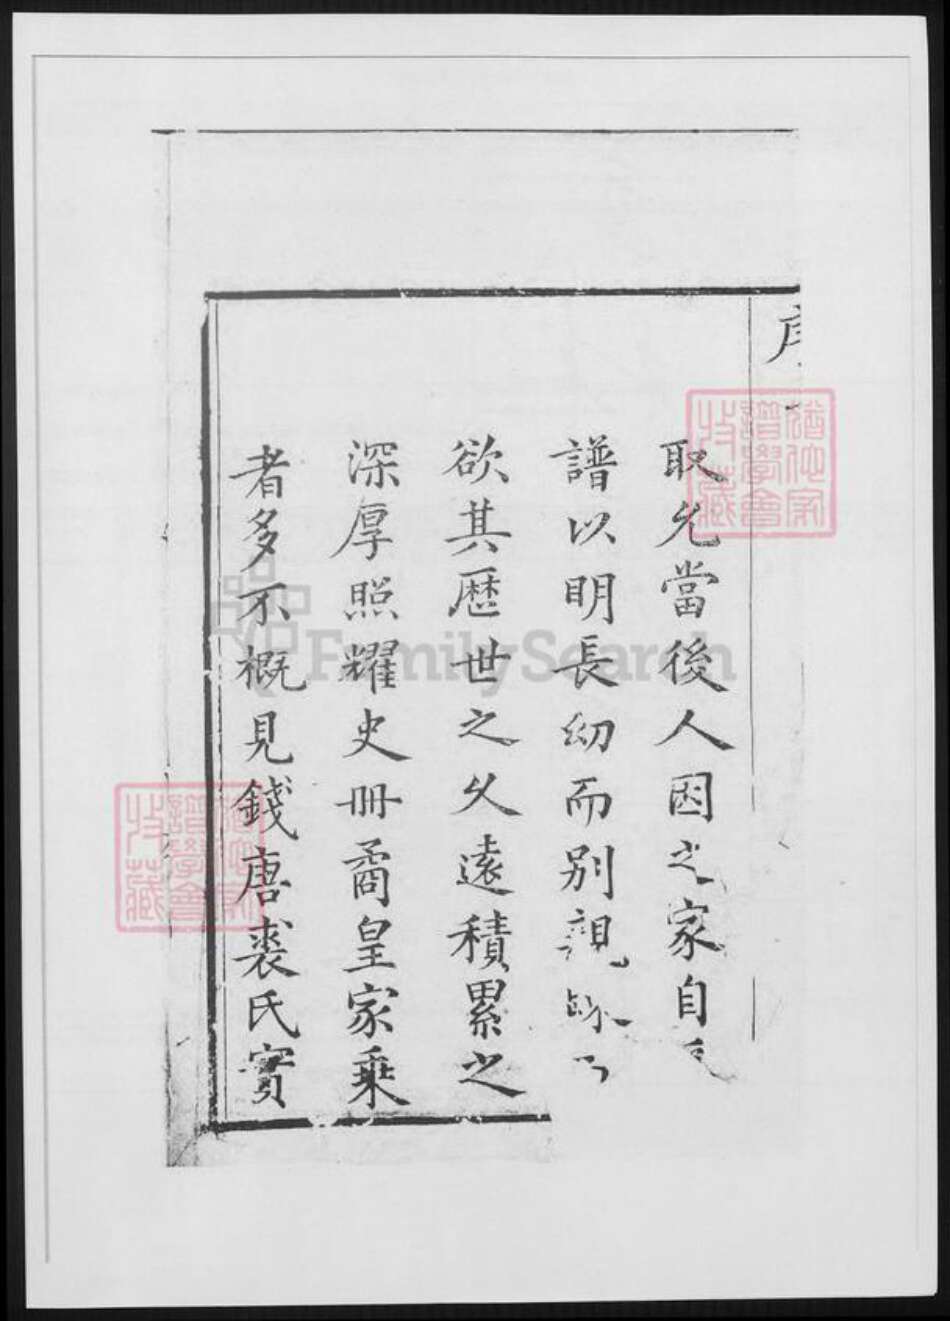 序
取允當後人因之家自
譜以明長幼而別親疎
欲其歷世之久遠積累之
深厚照耀史冊矞皇家乘
者多不概見錢唐裘氏實
譜學會
收藏
FamilySearch